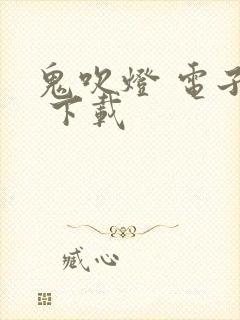 鬼吹燈 電子
下載
臧心